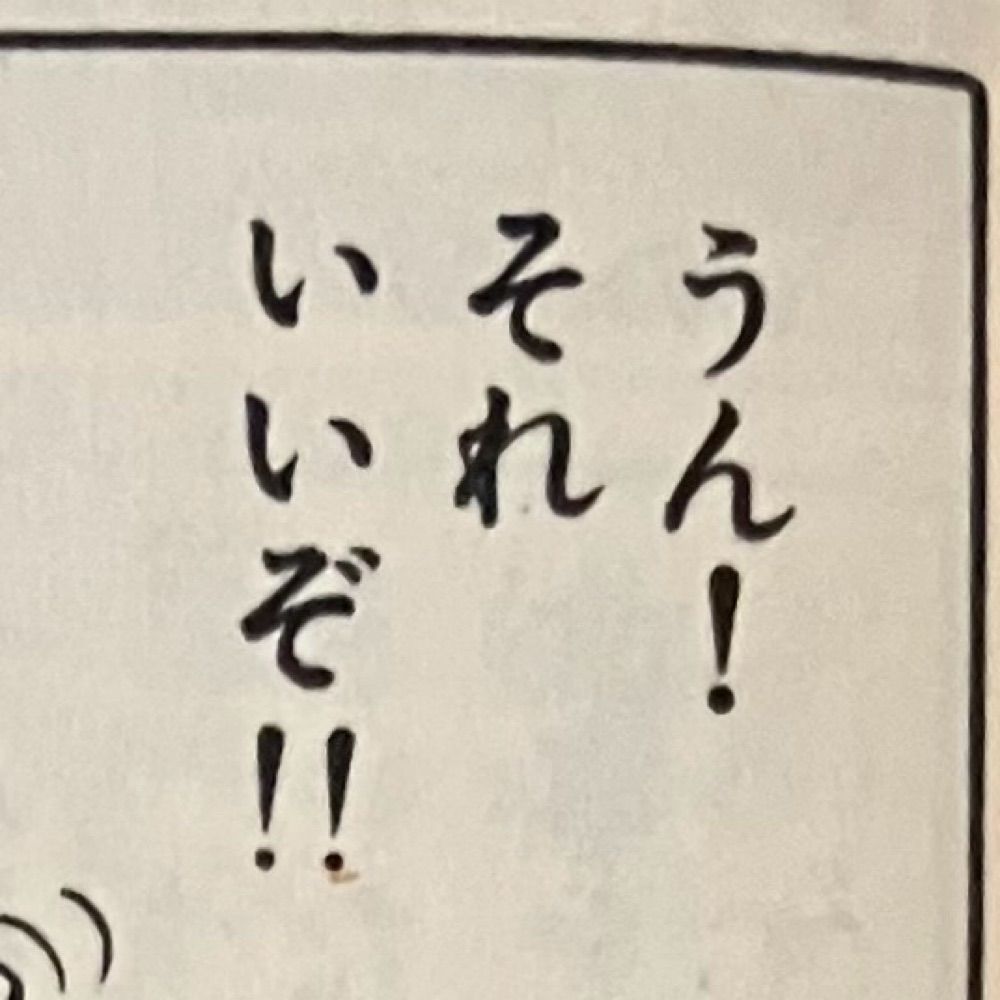 うん！
それ
いいぞ！！